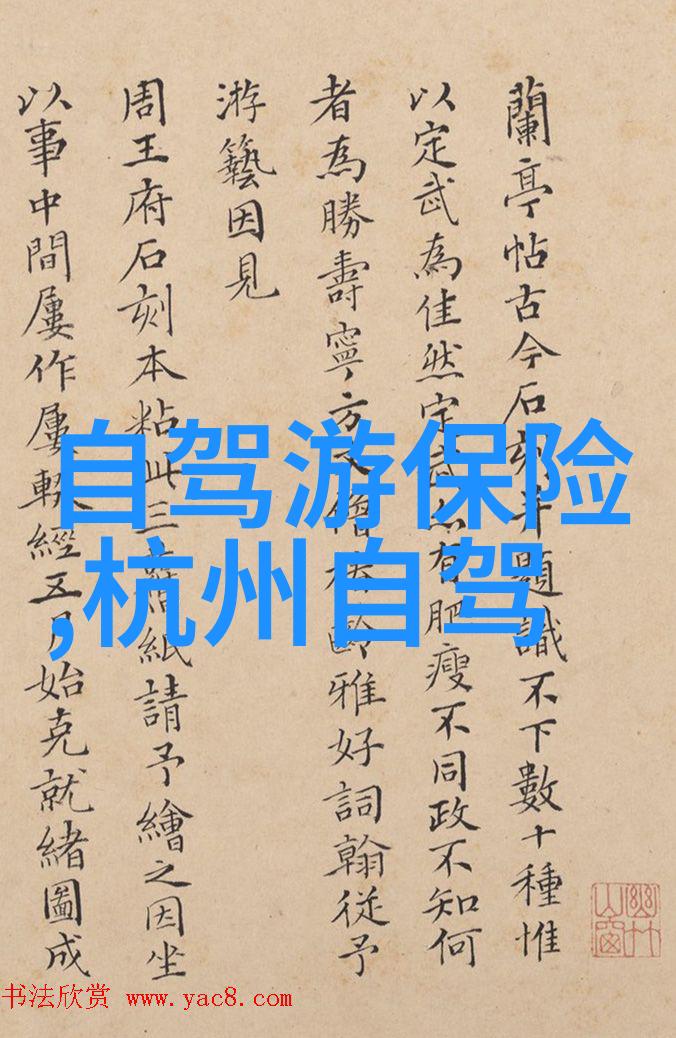 蘭亭帖古今石刻并題識不下數十種惟
以定武為佳然定武亦有肥瘦不同政不知何
者為勝壽寧方雅好詞翰從予
游藝因見
周王府石刻本粘此三紙請予繪之因坐
以事中間屢作屢輟經五月始克就緒圖成
自驾游保险
,杭州自驾
幽竹山窗
书法欣赏 www.yac8.com